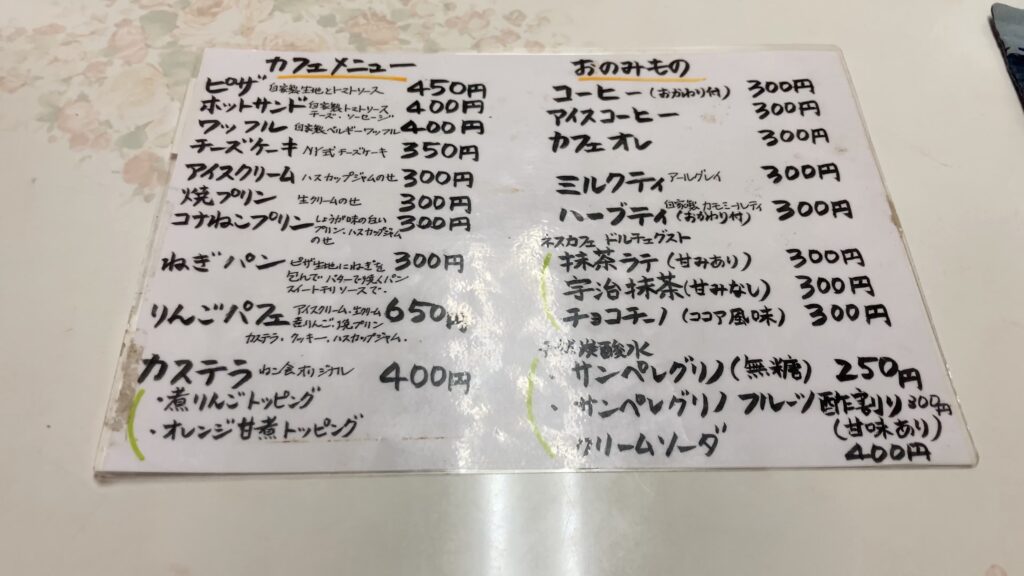 カフェメニュー
ピザ 自家製生地とトマトソース 450円
ホットサンド 自家製トマトソース チーズ・ソーセージ 400円
ワッフル 自家製ベルギーワッフル 400円
チーズケーキ NY式チーズケーキ 350円
アイスクリーム ハスカップジャムのせ 300円
焼プリン 生クリームのせ 300円
コナねこプリン しょうが味の白い プリン、ハスカップジャム のせ 300円
ねぎパン ピザ生地にねぎを 包んでバターで焼くパン スイートチリソースで。 300円
りんごパフェ アイスクリーム、生クリーム 煮りんご、焼プリン 650円
カステラ、クッキー、ハスカップジャム。
カステラ オリジナル 400円
・煮りんごトッピング
・オレンジ甘煮トッピング
おのみもの
コーヒー(おかわり付) 300円
アイスコーヒー 300円
カフェオレ 300円
ミルクティ アールグレイ 300円
ハーブティ 自家製カモミールティ (おかわり付) 300円
ネスカフェ ドルチェグスト
抹茶ラテ (甘みあり) 300円
宇治抹茶(甘みなし) 300円
チョコチーノ (ココア風味) 300円
炭酸水
・サンペレグリノ(無糖) 250円
・サンペレグリノ フルーツ酢割り 300円
(甘味あり)
クリームソーダ 400円